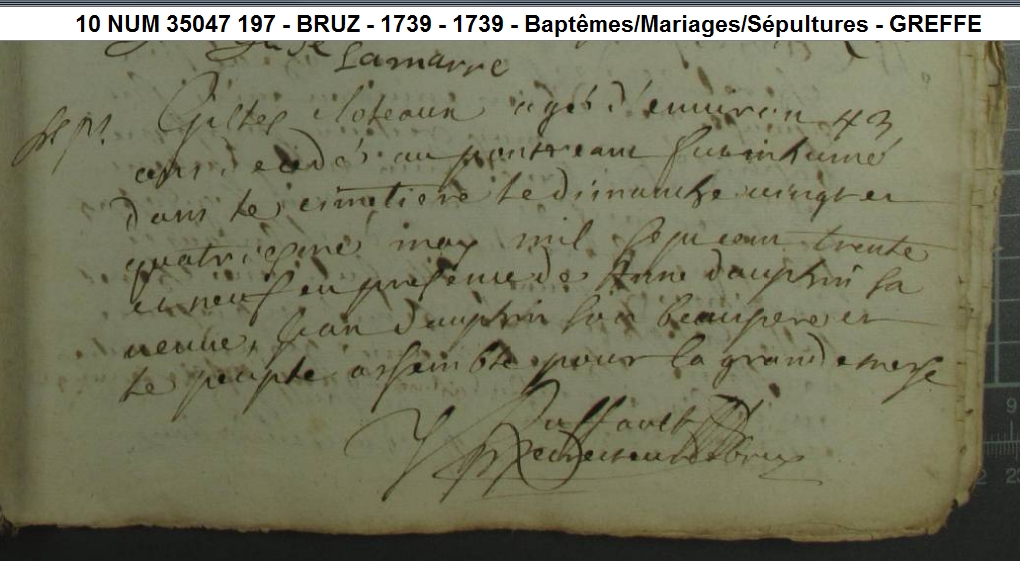 10 NUM 35047 197 - BRUZ - 1739 - 1739 - Baptêmes/Mariages/Sépultures - GREFFE
Lamarre
Gilles Noteaux agé d'enuiron 43
ans, au pontreau fut inhumé
dans le cimetiere le dimanche uingt et
quatrieme may mil sept cent trente
et neuf en presence de Anne dauphin sa
ueuue, Jean dauphin son beaupere et
le peuple assemblé pour la grande messe
Ruffault
recteur de bruz
9